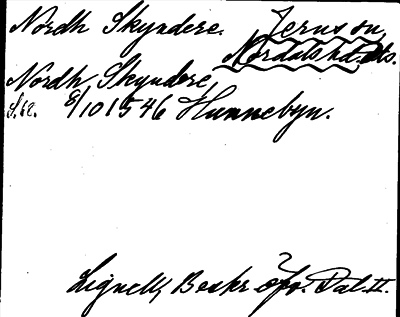 Nordh Skyndere. Jerus sn,
Nordals hd. Ds.
Nordh Skyndere,
S. 62. 8/10 1546 Hunnebyn.
Lignell, Beskr. öfv. Dal. II.